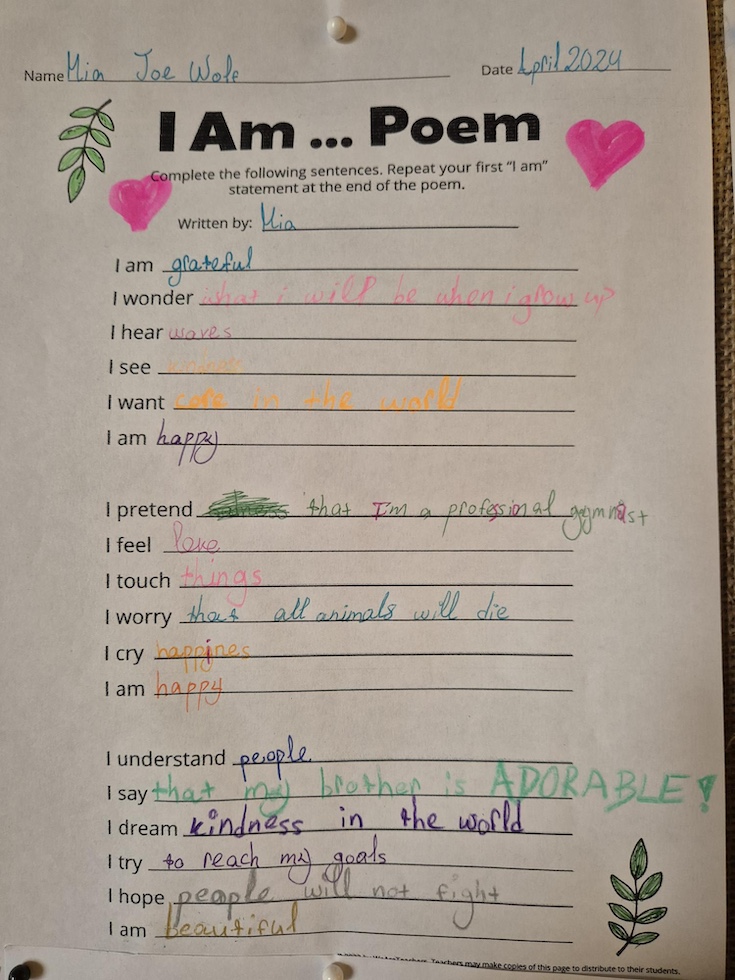 Name Mia Joe Wolf Date April 2024
I Am ... Poem
Complete the following sentences. Repeat your first “I am”
statement at the end of the poem.
Written by: Mia
I am grateful
I wonder what i will be when i grow up
I hear waves
I see
I want care in the world
I am happy
I pretend that I'm a profesional gymnast
I feel love
I touch things
I worry that all animals will die
I cry happines
I am happy
I understand people.
I say that my brother is ADORABLE!
I dream kindness in the world
I try to reach my goals
I hope people will not fight
I am beautiful
WeAreTeachers. Teachers may make copies of this page to distribute to their students.